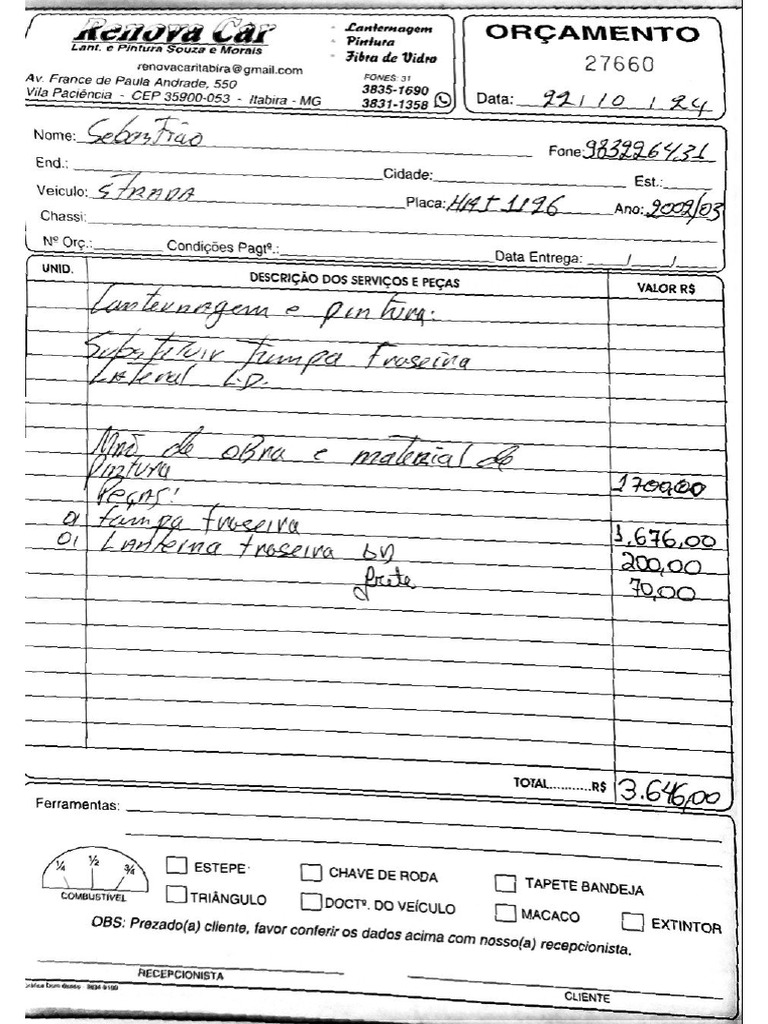 Renova Car
Lant. e Pintura Souza e Morais
renovacaritabira@gmail.com
Av. France de Paula Andrade, 550
Vila Paciência - CEP 35900-053 - Itabira - MG
- Lanternagem
- Pintura
- Fibra de Vidro
FONES: 31
3835-1690
3831-1358
ORÇAMENTO
27660
Data: 22/10/24
Nome: Sebastião Fone: 983226431
End.: Cidade: Est.:
Veículo: STRADA Placa: HAJ 1196 Ano: 2002/03
Chassi:
Nº Orç.: Condições Pagtº.: Data Entrega: / /
UNID. DESCRIÇÃO DOS SERVIÇOS E PEÇAS VALOR R$
Lanternagem e pintura.
Substituir Tampa Traseira
Lateral L.D.
Mão de obra e material de
pintura 1700,00
Peças:
01 tampa traseira 1.676,00
01 Lanterna traseira LD 200,00
frete 70,00
TOTAL...........R$ 3.646,00
Ferramentas:
¼ ½ ¾
COMBUSTÍVEL
ESTEPE CHAVE DE RODA TAPETE BANDEJA
TRIÂNGULO DOCTº. DO VEÍCULO MACACO EXTINTOR
OBS: Prezado(a) cliente, favor conferir os dados acima com nosso(a) recepcionista.
RECEPCIONISTA CLIENTE